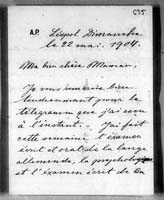 635
A.P.
Léopol Dimanche
le 22 mai. 1904.
Ma bien chère Maman,
Je vous remercie bien
tendrement pour le
télégramme que j'ai reçu
à l'instant. J'ai fait
cette semaine l'examen
écrit et oral de la langue
allemande, la psychologie
et l'examen écrit de la